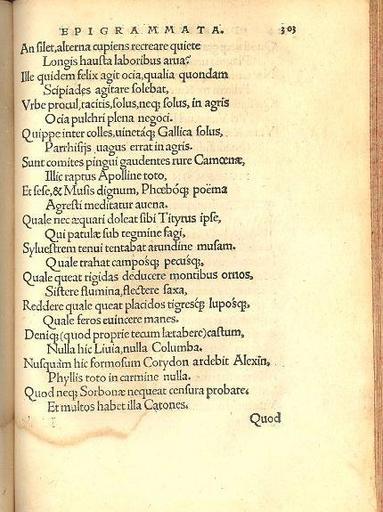 EPIGRAMMATA. 303
An silet, alterna cupiens recreare quiete
Longis hausta laboribus arua?
Ille quidem felix agit ocia, qualia quondam
Scipiades agitare solebat,
Vrbe procul, tacitis, solus, neq; solus, in agris
Ocia pulchri plena negoci.
Quippe inter colles, uinetáq; Gallica solus,
Parrhisijs uagus errat in agris.
Sunt comites pingui gaudentes rure Camœnæ,
Illic raptus Apolline toto,
Et sese, & Musis dignum, Phœbóq; poëma
Agresti meditatur auena.
Quale nec æquari doleat sibi Tityrus ipse,
Qui patulæ sub tegmine fagi,
Syluestrem tenui tentabat arundine musam.
Quale trahat camposq; pecusq;,
Quale queat rigidas deducere montibus ornos,
Sistere flumina, flectere saxa,
Reddere quale queat placidos tigresq; luposq;,
Quale feros euincere manes.
Deniq; (quod proprie tecum lætabere) castum,
Nulla hic Liuia, nulla Columba.
Nusquàm hic formosum Corydon ardebit Alexin,
Phyllis toto in carmine nulla.
Quod neq; Sorbonæ nequeat censura probare,
Et multos habet illa Catones.
Quod